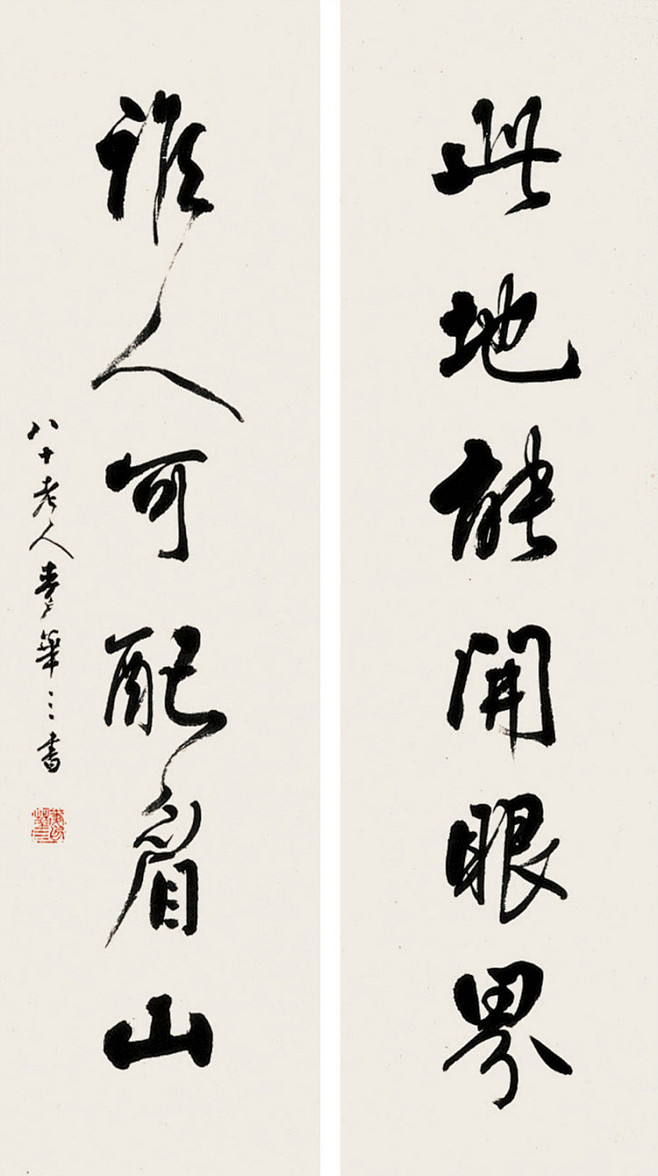 此地能開眼界
誰人可配眉山
八十老人麥華三書